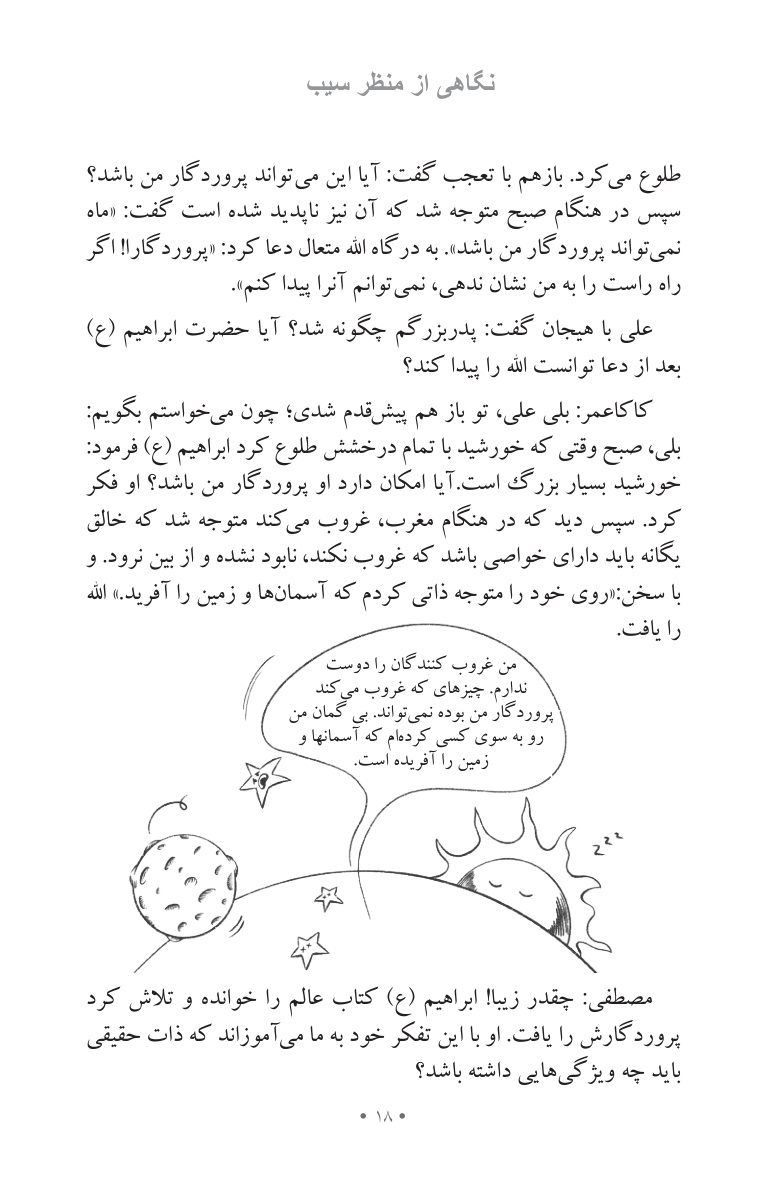 نگاهی از منظر سیب
طلوع می‌کرد. بازهم با تعجب گفت: آیا این می‌تواند پروردگار من باشد؟
سپس در هنگام صبح متوجه شد که آن نیز ناپدید شده است گفت: «ماه
نمی‌تواند پروردگار من باشد». به درگاه الله متعال دعا کرد: «پروردگارا! اگر
راه راست را به من نشان ندهی، نمی‌توانم آنرا پیدا کنم».
علی با هیجان گفت: پدربزرگم چگونه شد؟ آیا حضرت ابراهیم (ع)
بعد از دعا توانست الله را پیدا کند؟
کاکاعمر: بلی علی، تو باز هم پیش‌قدم شدی؛ چون می‌خواستم بگویم:
بلی، صبح وقتی که خورشید با تمام درخشش طلوع کرد ابراهیم (ع) فرمود:
خورشید بسیار بزرگ است.آیا امکان دارد او پروردگار من باشد؟ او فکر
کرد. سپس دید که در هنگام مغرب، غروب می‌کند متوجه شد که خالق
یگانه باید دارای خواصی باشد که غروب نکند، نابود نشده و از بین نرود. و
با سخن:«روی خود را متوجه ذاتی کردم که آسمان‌ها و زمین را آفرید.» الله
را یافت.
من غروب کنندگان را دوست
ندارم. چیزهای که غروب می‌کند
پروردگار من بوده نمی‌تواند. بی گمان من
رو به سوی کسی کرده‌ام که آسمانها و
زمین را آفریده است.
z z z
مصطفی: چقدر زیبا! ابراهیم (ع) کتاب عالم را خوانده و تلاش کرد
پروردگارش را یافت. او با این تفکر خود به ما می‌آموزاند که ذات حقیقی
باید چه ویژگی‌هایی داشته باشد؟
• ۱۸ •